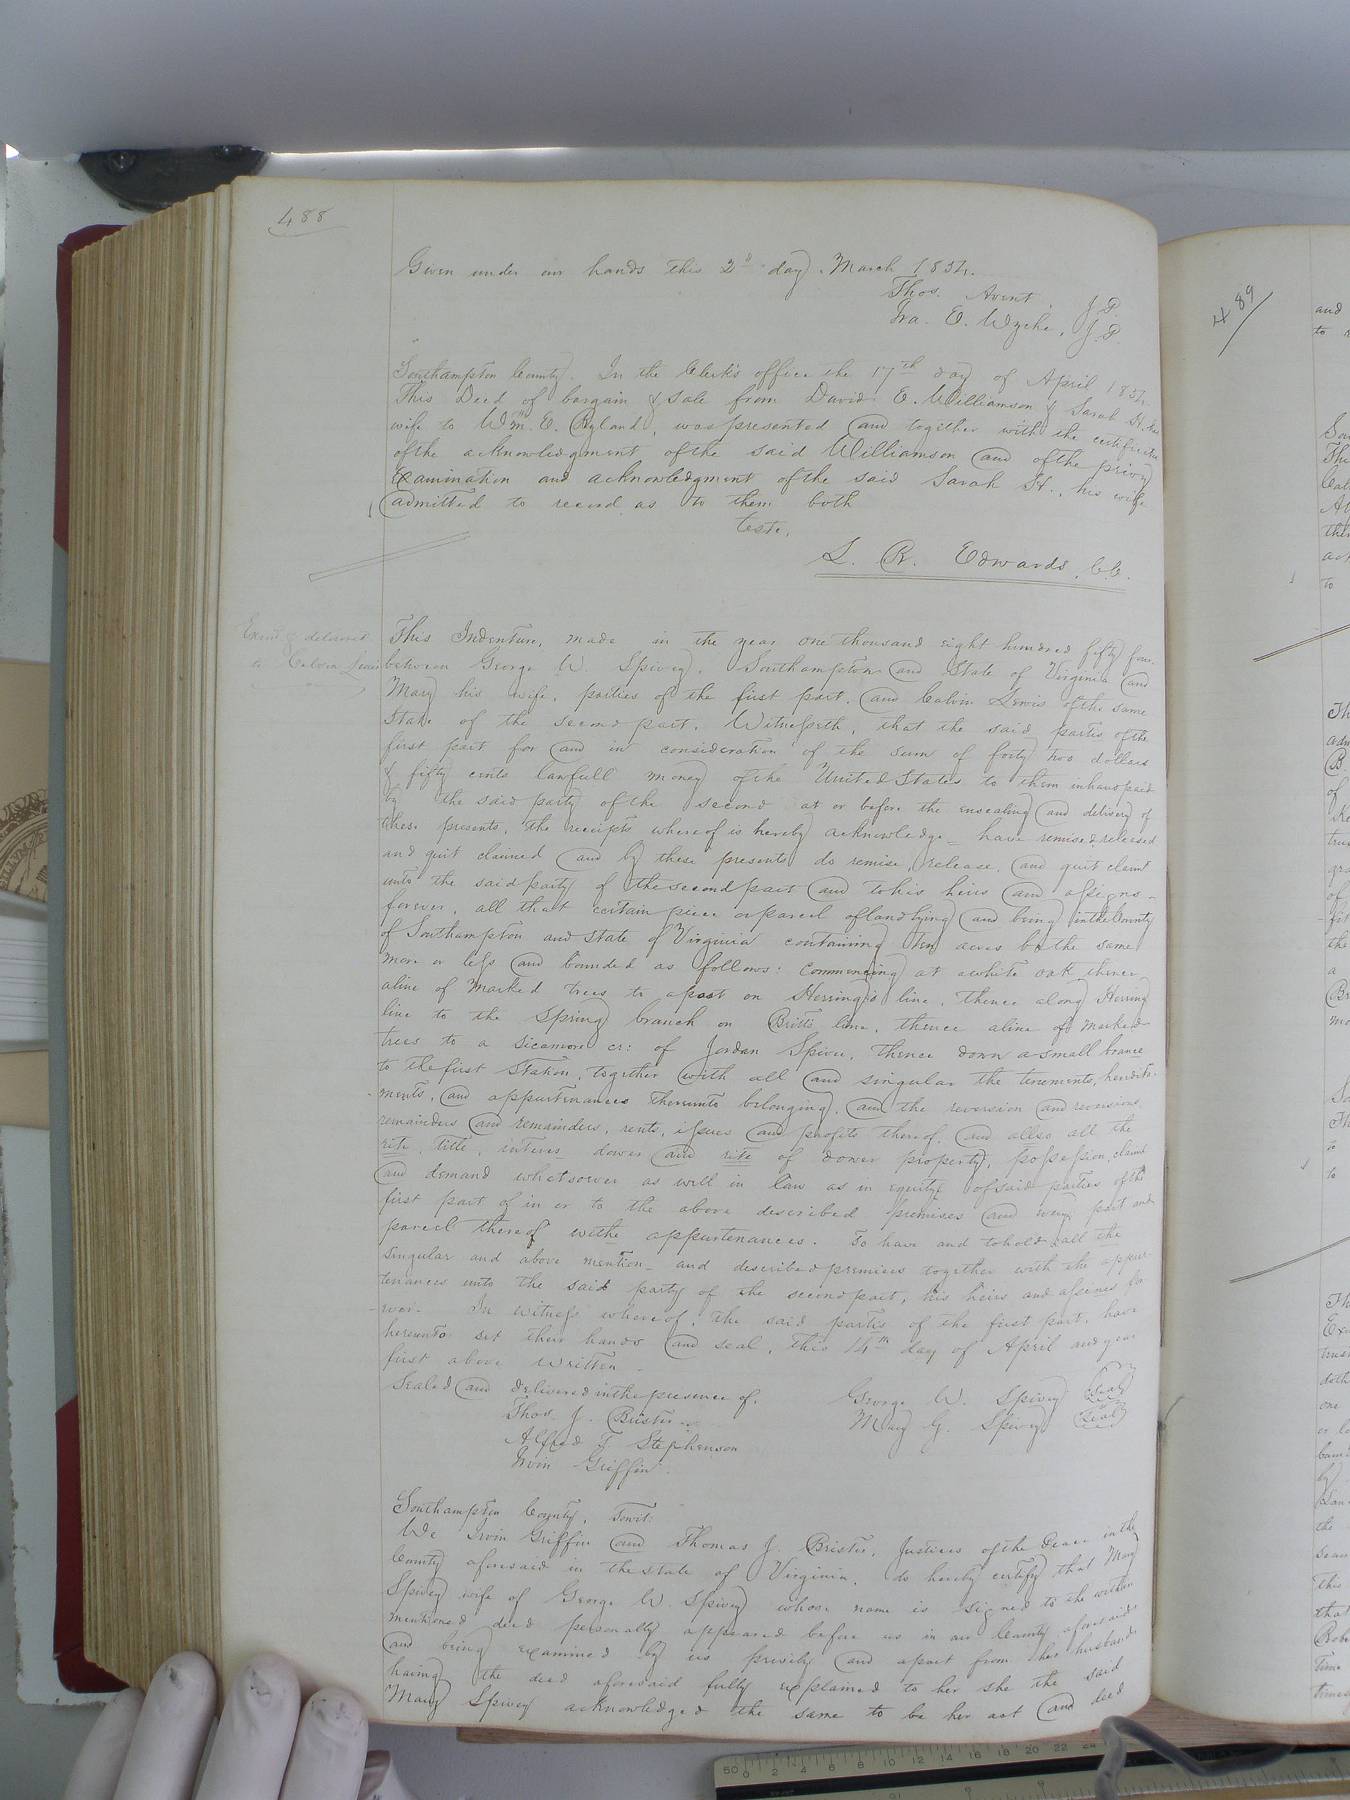 488
Given under our hands this 2d day March 1854.
Thos. Avent, J.P.
Fra. E. Wyche, J.P.
Southampton County. In the Clerk's office the 17th day of April 1854.
This Deed of bargain & sale from David E. Williamson & Sarah H. his
wife to Wm. E. Ryland, was presented and together with the certificate
of the acknowledgment of the said Williamson and of the privy
Examination and acknowledgment of the said Sarah H., his wife
admitted to record as to them both
Teste,
L. R. Edwards, C.C.
Exmd & delivered
to Calvin Lewis
This Indenture, made in the year one thousand eight hundred fifty four
between George W. Spivey, Southampton and State of Virginia and
Mary his wife, parties of the first part, and Calvin Lewis of the same
State of the second part, Witnesseth, that the said parties of the
first part for and in consideration of the sum of forty two dollars
& fifty cents lawfull money of the United States to them in hand paid
by the said party of the second at or before the ensealing and delivery of
these presents, the receipts whereof is hereby acknowledge- have remised released
and quit claimed and by these presents do remise, release, and quit claim
unto the said party of the second part and to his heirs and assigns-
forever, all that certain piece or parcel of land lying and being in the County
of Southampton and State of Virginia containing ten acres be the same
more or less and bounded as follows: Commencing at a white oak thence
a line of marked trees to a post on Herring's line, thence along Herring
line to the Spring branch on Britts line, thence a line of marked
trees to a sicamore cr: of Jordan Spivee, thence down a small brance
to the first Station, together with all and singular the tenements, heredita-
ments, and appurtenances thereunto belonging, and the reversion and reversions
remainders and remainders, rents, issues and profits thereof, and allso all the
rite, title, interes- dower and rite of dower property, possession, claim
and demand whatsoever as well in law as in equity of said parties of the
first part of in or to the above described premises and every part and
parcel thereof withe appurtenances. To have and to hold all the
singular and above mention- and described premises together with the appur-
tenances unto the said party of the second part, his heirs and assines for
-ever. In witness whereof, the said partis of the first part, have
hereunto set their hands and seal, this 14th day of April and year
first above written
Sealed and delivered in the presence of. George W. Spivey (Seal)
Thos. J. Brister Mary G. Spivey (Seal)
Alfred F Stephenson
Irvin Griffin
Southampton County, Towit:
We Irvin Griffin and Thomas J. Brister, Justices of the Peace in the
County aforesaid in the State of Virginia, do hereby certify that Mary
Spivey wife of George W. Spivey whose name is signed to the within
mentioned deed personally appeared before us in our County aforesaid
and being examined by us privily and apart from her husband
having the deed aforesaid fully explained to her she the said
Mary Spivey acknowledged the same to be her act and deed
489